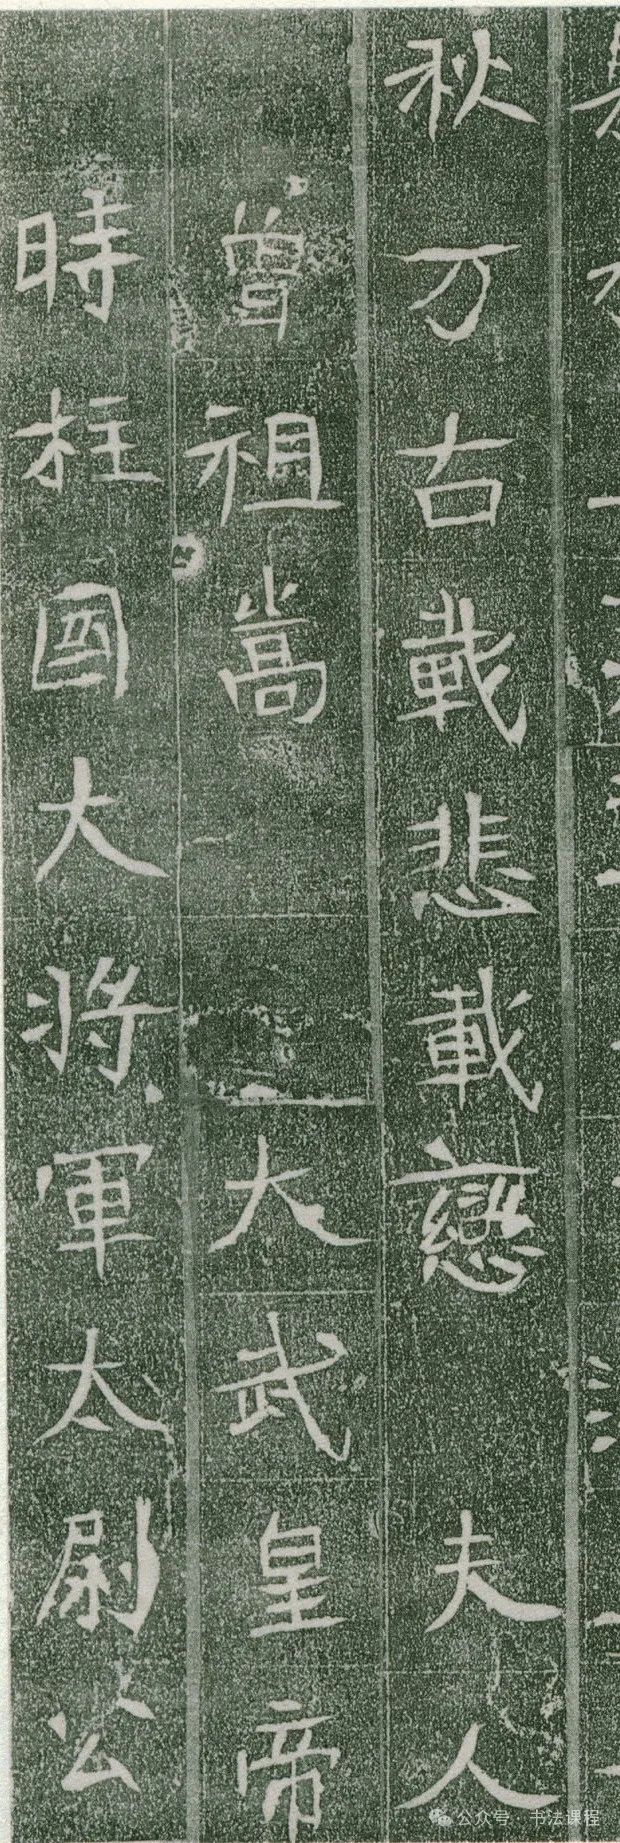 秋万古載悲載戀夫人
曾祖嵩大武皇帝
時柱國大將軍太尉公
公众号·书法课程